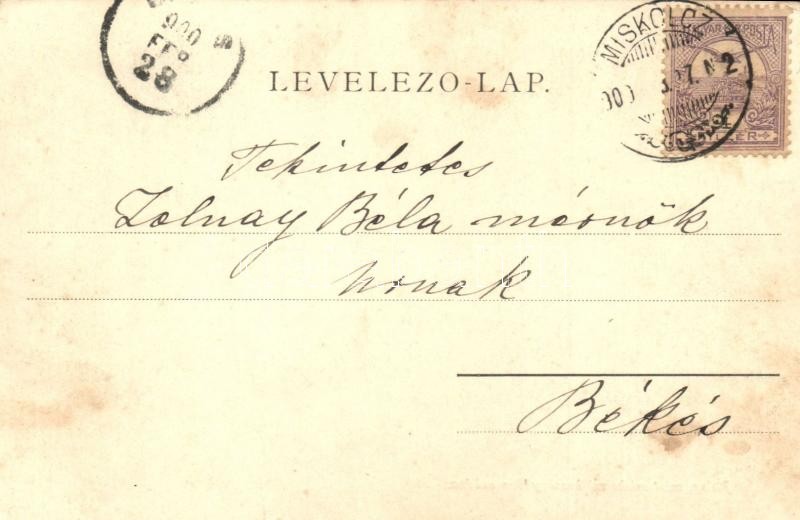 900
FEB
28
LEVELEZO-LAP.
MISKOLCZ
MAGYAR KIR. POSTA
900
2
Tekintetes
Zolnay Béla mérnök
úrnak
Békés